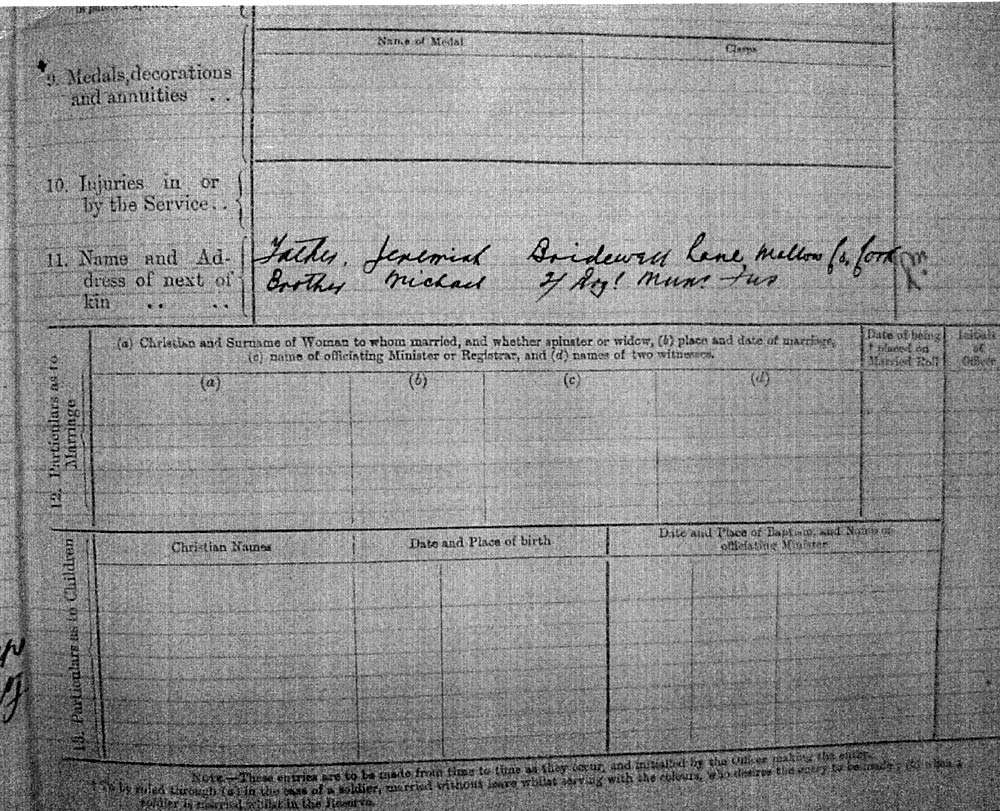 Name of Medal
Clasps
9. Medals, decorations
and annuities . .
10. Injuries in or
by the Service . .
11. Name and Ad-
dress of next of
kin . . . .
Father, Jeremiah Bridewell Lane Mallow Co. Cork
Brother Michael 2/ Roy! Muns Fus
12. Particulars as to
Marriage
(a) Christian and Surname of Woman to whom married, and whether spinster or widow, (b) place and date of marriage,
(c) name of officiating Minister or Registrar, and (d) names of two witnesses.
Date of being
† placed on
Married Roll
Initials
of
Officer
(a) (b) (c) (d)
13. Particulars as to Children
Christian Names
Date and Place of birth
Date and Place of Baptism, and Name of
officiating Minister
NOTE.—These entries are to be made from time to time as they occur, and initialled by the Officer making the entry.
† To be ruled through (a) in the case of a soldier, married without leave whilst serving with the colours, who desires the entry to be made; (b) when a
soldier is married whilst in the Reserve.